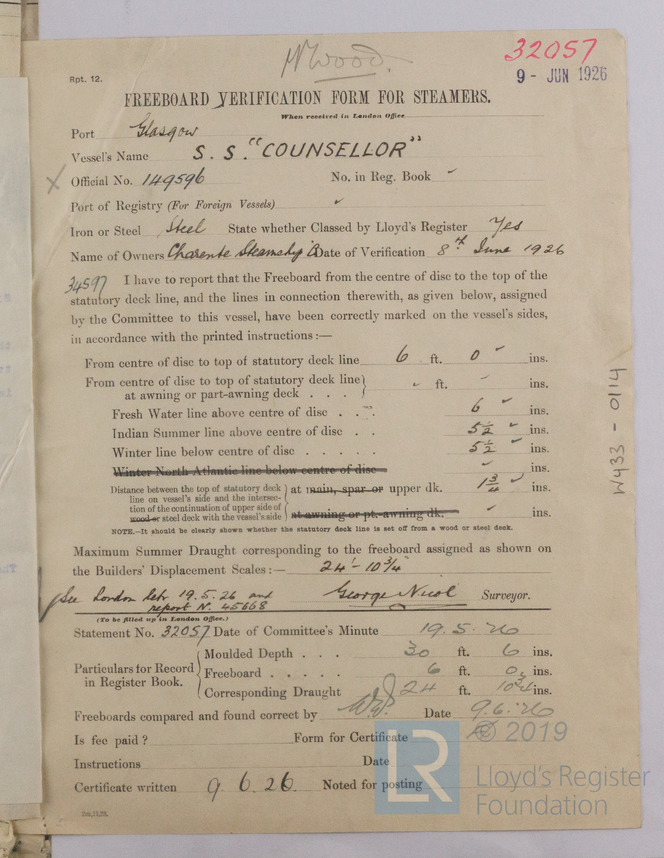 N Wood.
32057
Rpt. 12.
9 - JUN 1926
FREEBOARD VERIFICATION FORM FOR STEAMERS.
When received in London Office
Port Glasgow
Vessel's Name S. S. "COUNSELLOR"
Official No. 149596 No. in Reg. Book
Port of Registry (For Foreign Vessels)
Iron or Steel Steel State whether Classed by Lloyd's Register Yes
Name of Owners Charente Steamship Co Date of Verification 8th June 1926
34597 I have to report that the Freeboard from the centre of disc to the top of the
statutory deck line, and the lines in connection therewith, as given below, assigned
by the Committee to this vessel, have been correctly marked on the vessel's sides,
in accordance with the printed instructions :—
From centre of disc to top of statutory deck line 6 ft. 0 ins.
From centre of disc to top of statutory deck line
at awning or part-awning deck . . . ft. ins.
Fresh Water line above centre of disc . . . 6 ins.
Indian Summer line above centre of disc . . 5½ ins.
Winter line below centre of disc . . . . . 5½ ins.
Winter North Atlantic line below centre of disc ins.
Distance between the top of statutory deck
line on vessel's side and the intersec-
tion of the continuation of upper side of
wood or steel deck with the vessel's side
at main, spar or upper dk. 1¾ ins.
at awning or pt.-awning dk. ins.
NOTE.—It should be clearly shown whether the statutory deck line is set off from a wood or steel deck.
Maximum Summer Draught corresponding to the freeboard assigned as shown on
the Builders' Displacement Scales :— 24' - 10¾"
See London letr 19.5.26 and
report No. 45668
George Nicol Surveyor.
(To be filled up in London Office.)
Statement No. 32057 Date of Committee's Minute 19.5.26
Particulars for Record
in Register Book.
Moulded Depth . . . 30 ft. 6 ins.
Freeboard . . . . . 6 ft. 0 ins.
Corresponding Draught 24 ft. 10¾ ins.
Freeboards compared and found correct by Date 9.6.26
Is fee paid ? Form for Certificate
Instructions Date
Certificate written 9.6.26. Noted for posting
W433 - 0114
LR
© 2019
Lloyd's Register
Foundation